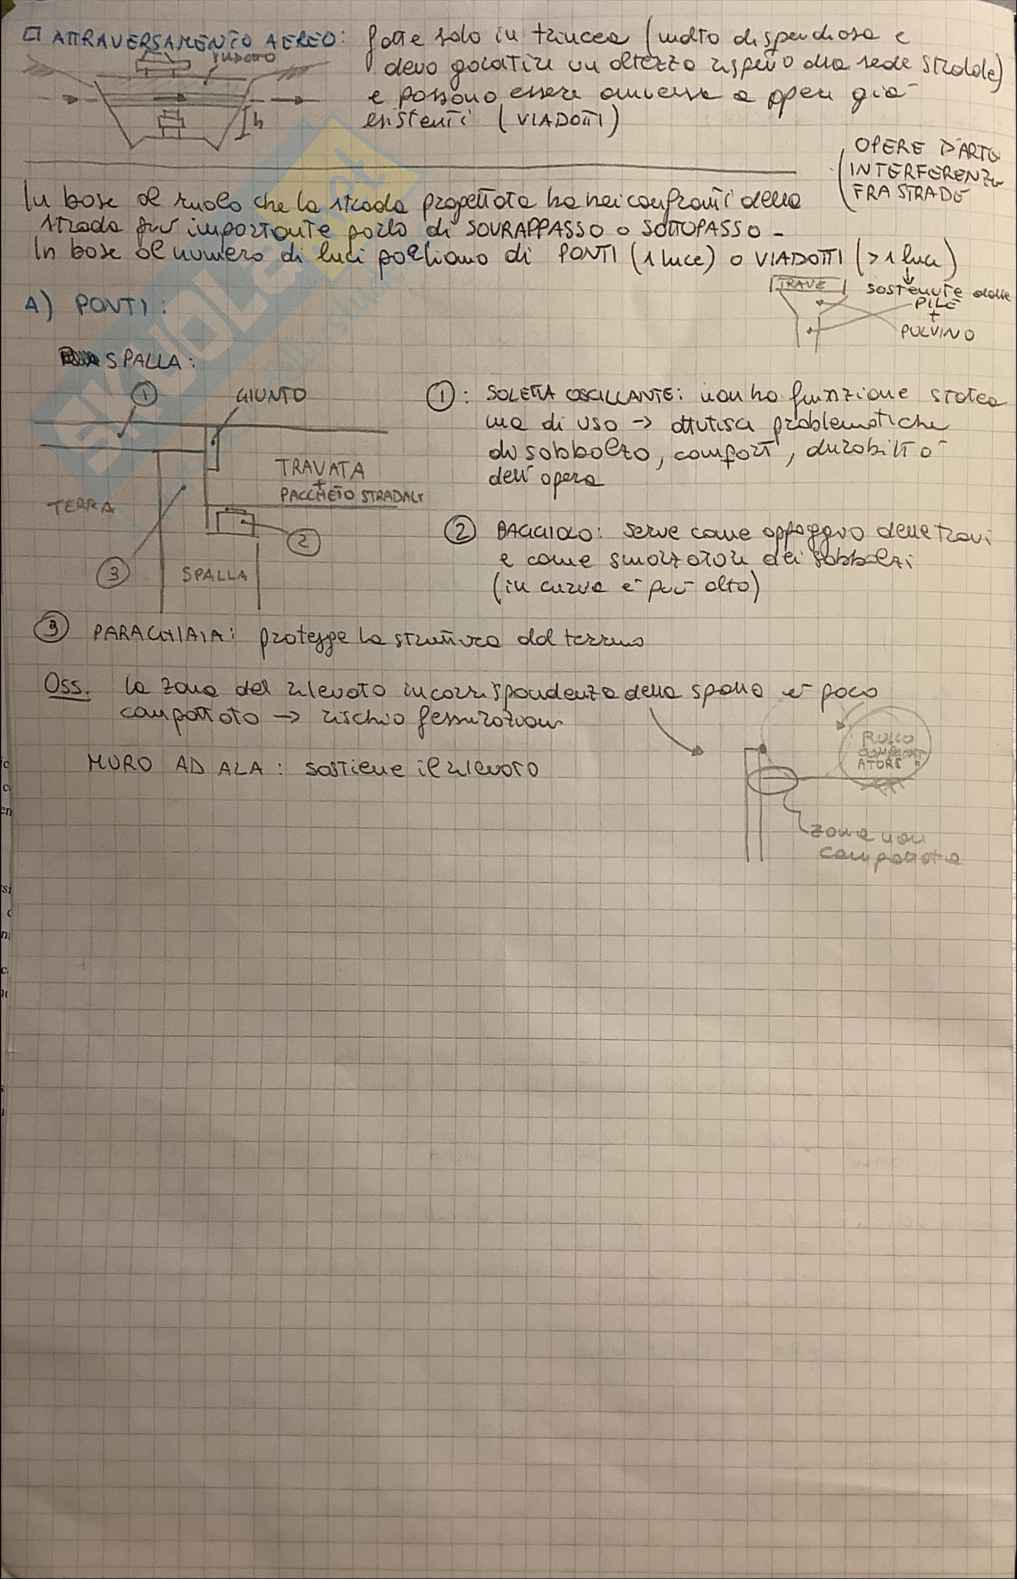 □ ATTRAVERSAMENTO AEREO: fatte solo in trincea (molto dispendiosa e
devo garantire un altezza rispetto alla sede stradale)
e possono essere annesse a opere già
esistenti (VIADOTTI)
h
OPERE D'ARTE
INTERFERENZE
FRA STRADE
In base al ruolo che la strada progettata ha nei confronti della
strada più importante parlo di SOVRAPPASSO o SOTTOPASSO -
In base al numero di luci parliamo di PONTI (1 luce) o VIADOTTI (> 1 luce)
TRAVE
SOSTENUTE dalle
PILE
+
PULVINO
A) PONTI:
SPALLA:
1
GIUNTO
TRAVATA
+
PACCHETTO STRADALE
TERRA
2
3
SPALLA
1: SOLETTA OSCILLANTE: non ho funzione statica
ma di uso → attutisce problematiche
di sobbalzo, comfort, durabilità
dell'opera
2 BAGGIOLO: serve come appoggio delle travi
e come smorzatore dei sobbalzi
(in curva è più alto)
3 PARAGHIAIA: protegge la struttura dal terreno
Oss. la zona del rilevato in corrispondenza della spalla è poco
compattato → rischio fessurazioni
RULLO
COMPATT
ATORE
MURO AD ALA: sostiene il rilevato
zona non
compattata
SKUOLA.net